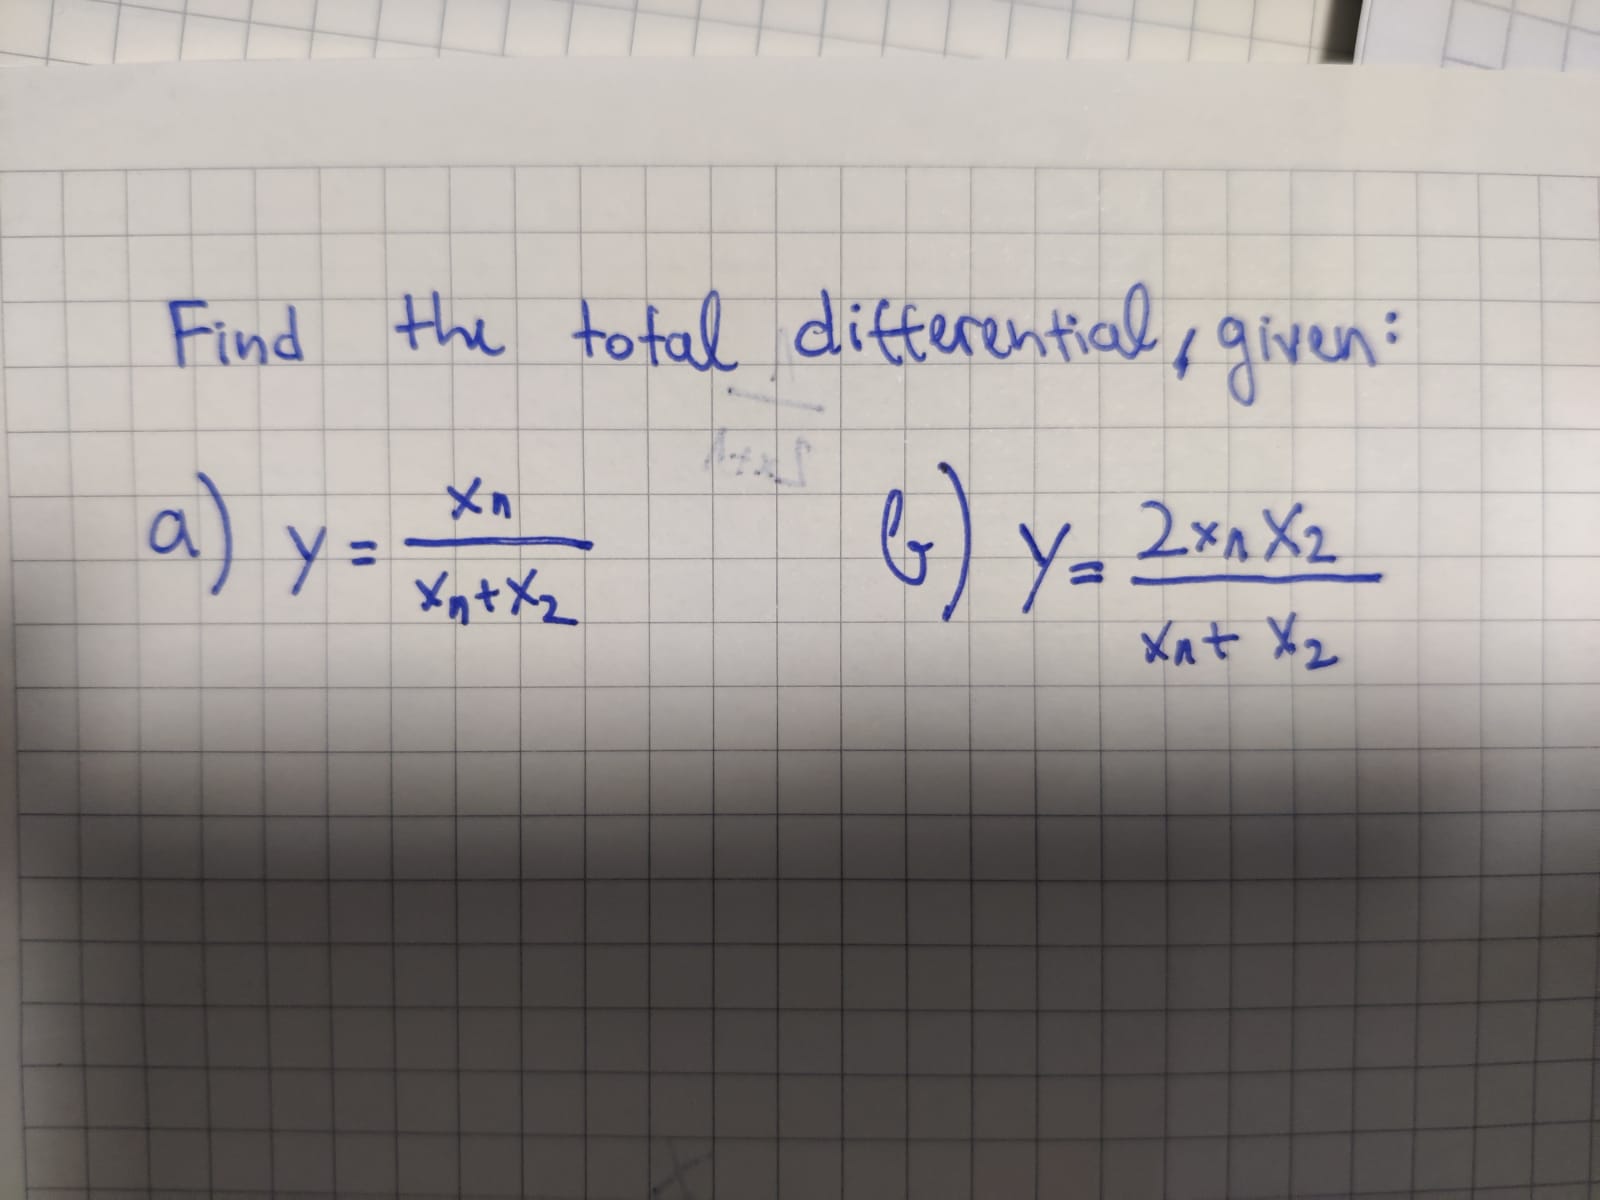 Find the total differential, given:
a) y = x₁/(x₁+x₂) b) y = 2x₁x₂/(x₁+x₂)